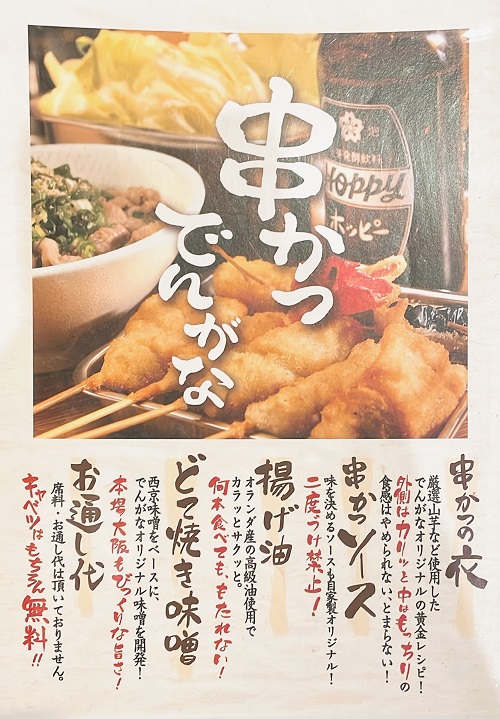 串かつ
でんがな
Hoppy
ホッピー
串かつの衣
厳選山芋など使用した
でんがなオリジナルの黄金レシピ！
外側はカリッと中はもっちりの
食感はやめられない、とまらない！
串かつソース
味を決めるソースも自家製オリジナル！
二度づけ禁止！
揚げ油
オランダ産の高級油使用で
カラッとサクッと。
何本食べても、もたれない！
どて焼き味噌
西京味噌をベースに、
でんがなオリジナル味噌を開発！
本場大阪もびっくりな旨さ！
お通し代
席料・お通し代は頂いておりません。
キャベツはもちろん無料！！